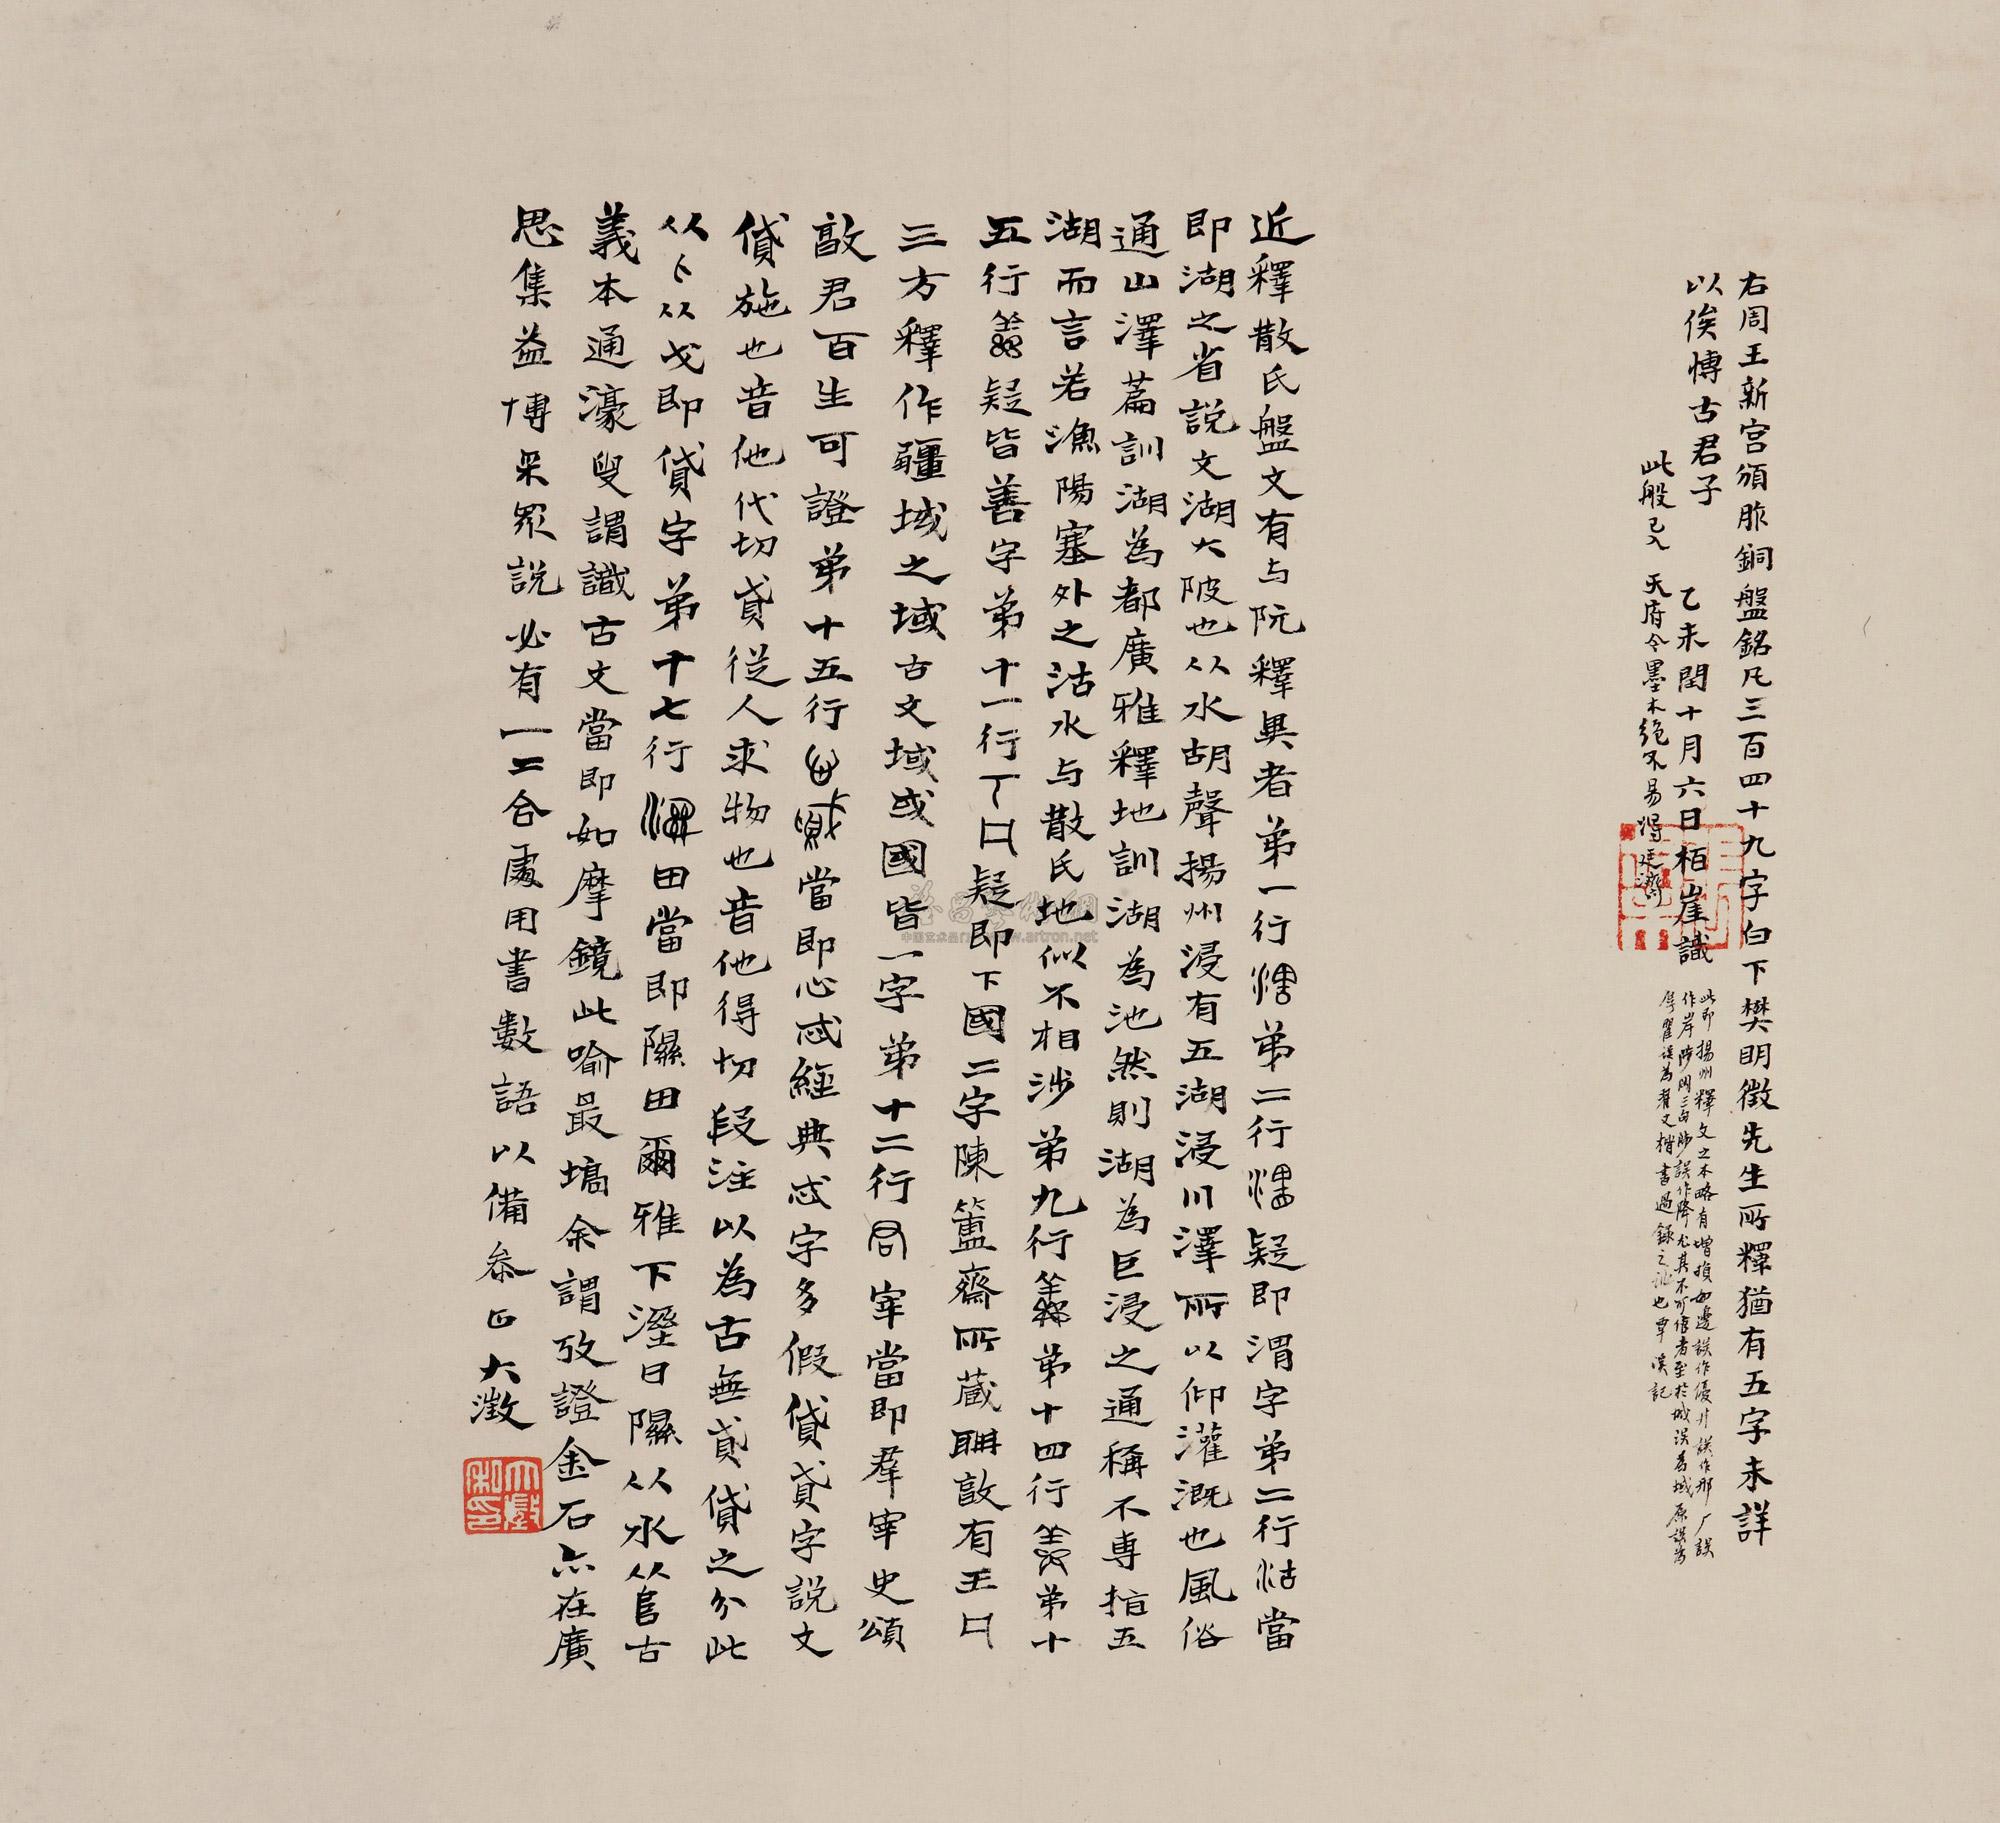 右周王新宮頒胙銅盤銘凡三百四十九字白下樊明徵先生所釋猶有五字未詳
以俟博古君子
乙未閏十月六日栢崖識
此般已入天府今墨本絕不易得廷濟
此即揚州釋文之本略有增損如邊誤作優廾誤作那厂誤
作岸陟岡三句陟誤作降尤其不可信者至於城誤為域原誤為
誤為者又楷書過錄之訛也覃溪記
近釋散氏盤文有与阮釋異者弟一行弟二行疑即渭字弟二行沽當
即湖之省說文湖大陂也从水胡聲揚州浸有五湖浸川澤所以仰灌溉也風俗
通山澤篇訓湖為都廣雅釋地訓湖為池然則湖為巨浸之通稱不專指五
湖而言若漁陽塞外之沽水与散氏地似不相涉弟九行弟十四行弟十
五行疑皆善字弟十一行丅囗疑即下國二字陳簠齋所藏敦有王囗
三方釋作疆域之域古文域或國皆一字弟十二行宰當即羣宰史頌
敦君百生可證弟十五行當即心忒經典忒字多假貸貣字說文
貸施也音他代切貣從人求物也音他得切段注以為古無貣貸之分此
从卜从戈即貸字弟十七行田當即隰田爾雅下溼曰隰从水从㫖古
義本通濠叟謂識古文當即如摩鏡此喻最塙余謂攷證金石亦在廣
思集益博采眾說必有一二合處用書數語以備叅正大澂
大澂私印